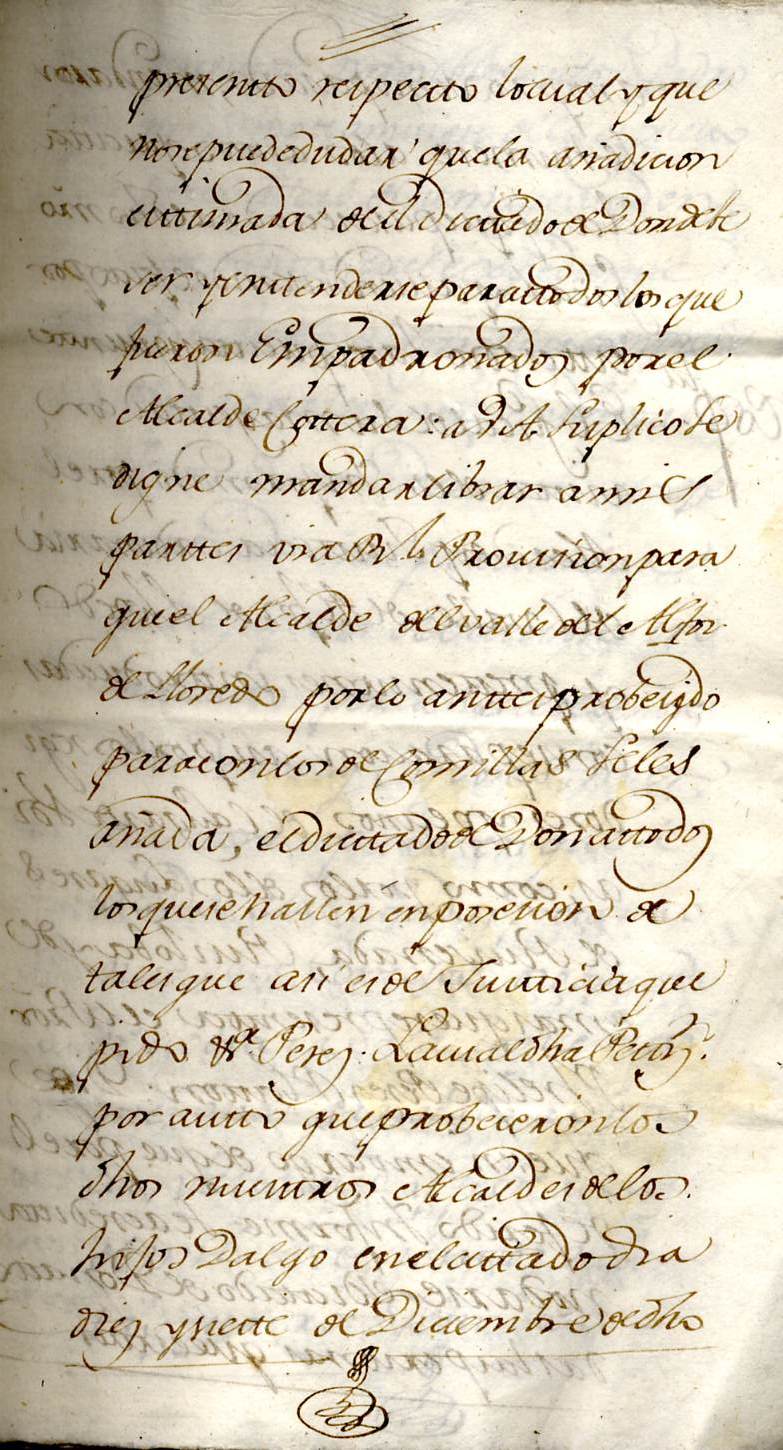 presentto respecto lo cual y que
no se puede dudar que la añadicion
cittimada de el dictado de Don debe
ser y enttenderse para ttodos los que
fueron Empadronados por el
Alcalde Cottera: a V.A. suplico se
digne mandar librar a mis
parttes vra Rl. Provision para
que el Alcalde del valle del Alfoz
de Lloredo por lo antte probeydo
para con los de Comillas se les
añada, el dictado de Don a ttodos
los que se hallen en posesion de
tales que asi es de Justticia que
pido &a. Perez. La cual dha Petizn.
por autto que probeieron los
dhos nuestros Alcaldes de los
hijos Dalgo en el cittado dia
diez y siette de Diciembre de dho